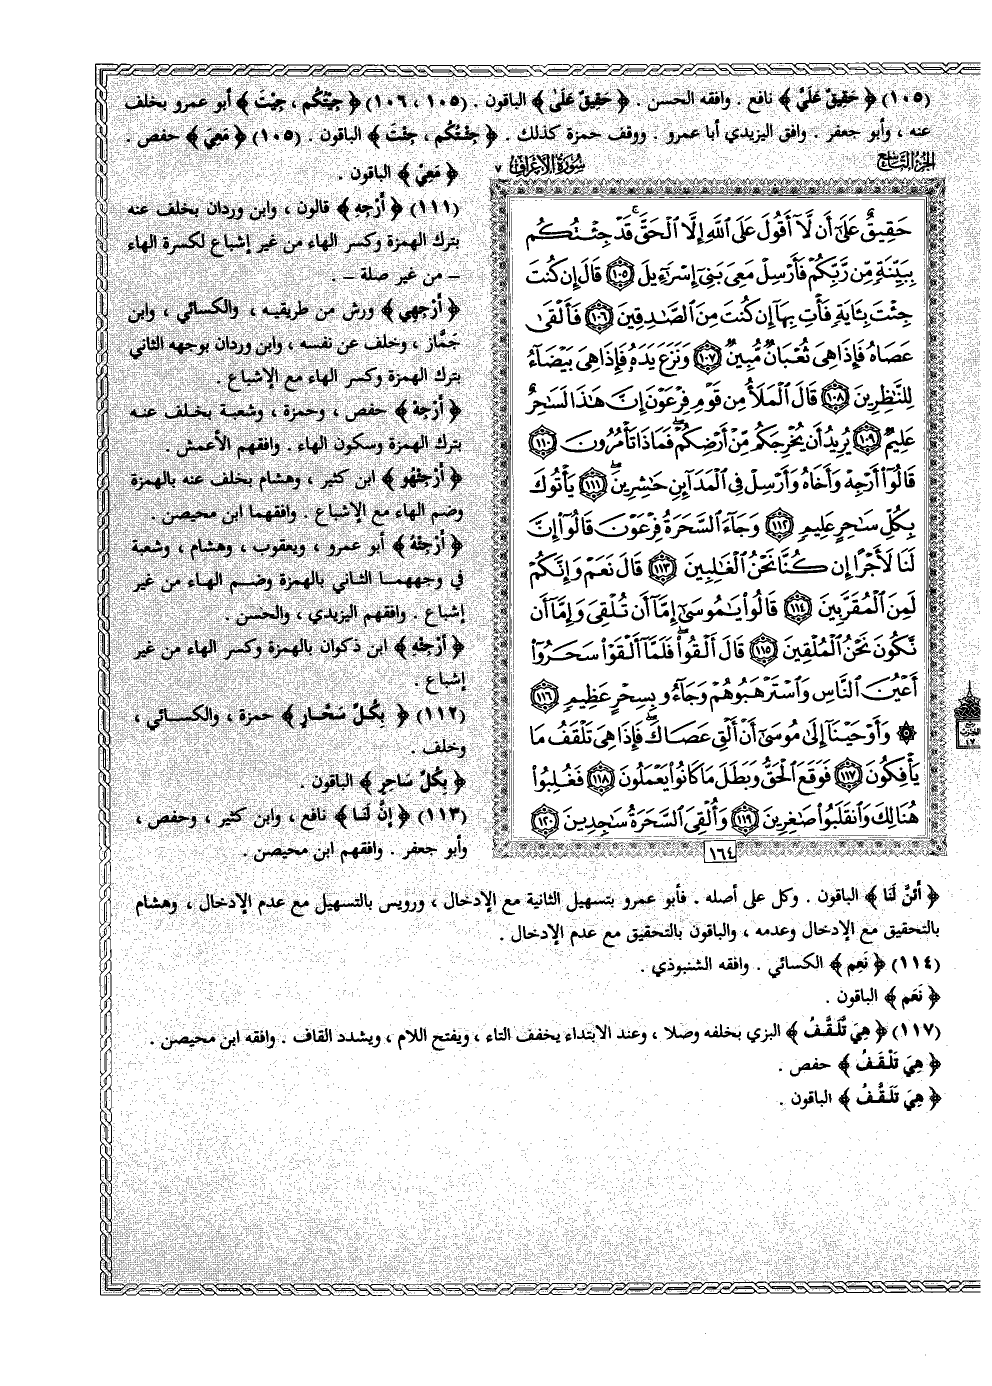 (١٠٥) ﴿ حَقِيقٌ عَلَيَّ ﴾ نافع . وافقه الحسن . ﴿ حَقِيقٌ عَلَىٰ ﴾ الباقون . (١٠٥ ، ١٠٦) ﴿ جِيْتُكُم ، جِيْتَ ﴾ أبو عمرو بخلف
عنه ، وأبو جعفر . وافق اليزيدي أبا عمرو . ووقف حمزة كذلك . ﴿ جِئْتُكُم ، جِئْتَ ﴾ الباقون . (١٠٥) ﴿ مَعِيَ ﴾ حفص .
﴿ مَعِيْ ﴾ الباقون .
(١١١) ﴿ أَرْجِهِ ﴾ قالون ، وابن وردان بخلف عنه
بترك الهمزة وكسر الهاء من غير إشباع لكسرة الهاء
– من غير صلة – .
﴿ أَرْجِهِي ﴾ ورش من طريقيه ، والكسائي ، وابن
جَمَّاز ، وخلف عن نفسه ، وابن وردان بوجهه الثاني
بترك الهمزة وكسر الهاء مع الإشباع .
﴿ أَرْجِهْ ﴾ حفص ، وحمزة ، وشعبة بخلف عنه
بترك الهمزة وسكون الهاء . وافقهم الأعمش .
﴿ أَرْجِئْهُو ﴾ ابن كثير ، وهشام بخلف عنه بالهمزة
وضم الهاء مع الإشباع . وافقهما ابن محيصن .
﴿ أَرْجِئْهُ ﴾ أبو عمرو ، ويعقوب ، وهشام ، وشعبة
في وجههما الثاني بالهمزة وضم الهاء من غير
إشباع . وافقهم اليزيدي ، والحسن .
﴿ أَرْجِئْهِ ﴾ ابن ذكوان بالهمزة وكسر الهاء من غير
إشباع .
(١١٢) ﴿ بِكُلِّ سَحَّارٍ ﴾ حمزة ، والكسائي ،
وخلف .
﴿ بِكُلِّ سَاحِرٍ ﴾ الباقون .
(١١٣) ﴿ إِنَّ لَنَا ﴾ نافع ، وابن كثير ، وحفص ،
وأبو جعفر . وافقهم ابن محيصن .
الجزء التاسع
سورة الأعراف ٧
حَقِيقٌ عَلَىٰ أَن لَّا أَقُولَ عَلَى اللَّهِ إِلَّا الْحَقَّ قَدْ جِئْتُكُم
بِبَيِّنَةٍ مِّن رَّبِّكُمْ فَأَرْسِلْ مَعِيَ بَنِي إِسْرَٰءِيلَ ١٠٥ قَالَ إِن كُنتَ
جِئْتَ بِـَٔايَةٍ فَأْتِ بِهَا إِن كُنتَ مِنَ الصَّٰدِقِينَ ١٠٦ فَأَلْقَىٰ
عَصَاهُ فَإِذَا هِيَ ثُعْبَانٌ مُّبِينٌ ١٠٧ وَنَزَعَ يَدَهُ فَإِذَا هِيَ بَيْضَاءُ
لِلنَّٰظِرِينَ ١٠٨ قَالَ الْمَلَأُ مِن قَوْمِ فِرْعَوْنَ إِنَّ هَٰذَا لَسَٰحِرٌ
عَلِيمٌ ١٠٩ يُرِيدُ أَن يُخْرِجَكُم مِّنْ أَرْضِكُمْ فَمَاذَا تَأْمُرُونَ ١١٠
قَالُوا أَرْجِهْ وَأَخَاهُ وَأَرْسِلْ فِي الْمَدَائِنِ حَٰشِرِينَ ١١١ يَأْتُوكَ
بِكُلِّ سَٰحِرٍ عَلِيمٍ ١١٢ وَجَاءَ السَّحَرَةُ فِرْعَوْنَ قَالُوا إِنَّ
لَنَا لَأَجْرًا إِن كُنَّا نَحْنُ الْغَٰلِبِينَ ١١٣ قَالَ نَعَمْ وَإِنَّكُمْ
لَمِنَ الْمُقَرَّبِينَ ١١٤ قَالُوا يَٰمُوسَىٰ إِمَّا أَن تُلْقِيَ وَإِمَّا أَن
نَّكُونَ نَحْنُ الْمُلْقِينَ ١١٥ قَالَ أَلْقُوا فَلَمَّا أَلْقَوْا سَحَرُوا
أَعْيُنَ النَّاسِ وَاسْتَرْهَبُوهُمْ وَجَاءُو بِسِحْرٍ عَظِيمٍ ١١٦
۞ وَأَوْحَيْنَا إِلَىٰ مُوسَىٰ أَنْ أَلْقِ عَصَاكَ فَإِذَا هِيَ تَلْقَفُ مَا
يَأْفِكُونَ ١١٧ فَوَقَعَ الْحَقُّ وَبَطَلَ مَا كَانُوا يَعْمَلُونَ ١١٨ فَغُلِبُوا
هُنَالِكَ وَانقَلَبُوا صَٰغِرِينَ ١١٩ وَأُلْقِيَ السَّحَرَةُ سَٰجِدِينَ ١٢٠
ربع
الحزب
١٧
١٦٤
﴿ أَئِنَّ لَنَا ﴾ الباقون . وكل على أصله . فأبو عمرو بتسهيل الثانية مع الإدخال ، ورويس بالتسهيل مع عدم الإدخال ، وهشام
بالتحقيق مع الإدخال وعدمه ، والباقون بالتحقيق مع عدم الإدخال .
(١١٤) ﴿ نَعِم ﴾ الكسائي . وافقه الشنبوذي .
﴿ نَعَم ﴾ الباقون .
(١١٧) ﴿ هِيَ تَّلَقَّفُ ﴾ البزي بخلفه وصلا ، وعند الابتداء يخفف التاء ، ويفتح اللام ، ويشدد القاف . وافقه ابن محيصن .
﴿ هِيَ تَلْقَفُ ﴾ حفص .
﴿ هِيَ تَلَقَّفُ ﴾ الباقون .